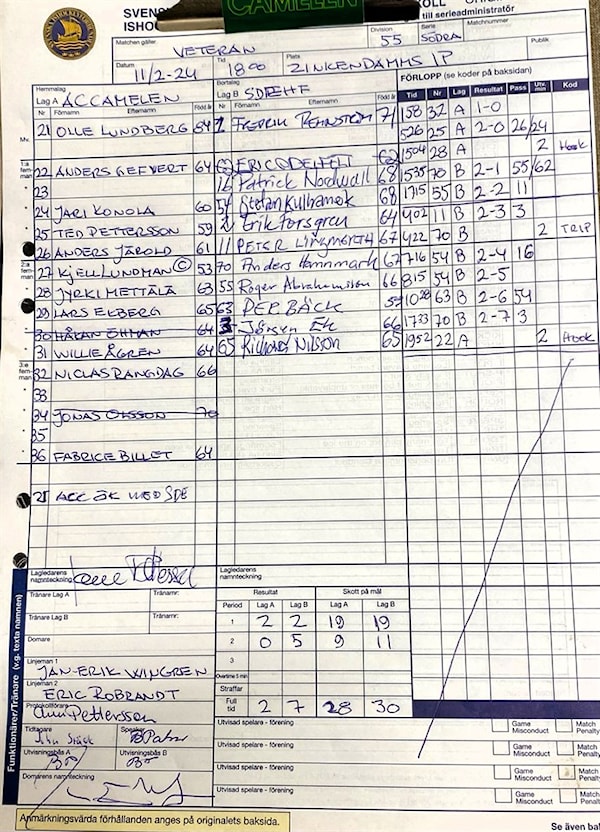 CAMELEN
SVENSK
ISHOCK
till serieadministratör
Division
Serie
Matchnummer
55 SÖDRA
Matchen gäller
VETERAN
Publik
Datum 11/2-24 Tid 1800 Plats ZINKENDAMMS IP
FÖRLOPP (se koder på baksidan)
Hemmalag
Lag A AC CAMELEN
Bortalag
Lag B SDEHF
Nr Förnamn Efternamn Född år
Nr Förnamn Efternamn Född år
Tid Nr Lag Resultat Pass Utv. min Kod
Mv.
21 OLLE LUNDBERG 54
1 FREDRIK 71
158 32 A 1-0
526 25 A 2-0 26/24
1504 28 A 2 Hook
1:a fem-man
22 ANDERS GEFVERT 64
62
1535 70 B 2-1 55/62
23
Patrick Nordwall 68
1715 55 B 2-2 11
24 JARI KONOLA 60
54 Stefan Kulhanek 68
402 11 B 2-3 3
25 TED PETTERSSON 59
2 Erik Forsgren 64
422 70 B 2 TRIP
26 ANDERS JÄROLD 61
11 PETER LINGMERTH 67
716 54 B 2-4 16
2:a fem-man
27 KJELL LUNDMAN C 53
70 Anders Hammmark 62
815 54 B 2-5
28 JYRKI METTÄLÄ 63
55 Roger Abrahamsson 66
1028 63 B 2-6 54
29 LARS EKBERG 65
63 PER BÄCK 59
1733 70 B 2-7 3
30 HÅKAN ÖHMAN 64
3 Jörgen Ek 66
1952 22 A 2 Hook
31 WILLIE ÅGREN 64
65 Richard Nilsson 65
3:e fem-man
32 NICLAS RANGDAG 66
33
34 JONAS OLSSON 70
35
36 FABRICE BILLET 64
ACC ÄK MED SDE
Lagledarens namnteckning
Lagledarens namnteckning
Tränare Lag A Tränarnr:
Tränare Lag B Tränarnr:
Domare
Linjeman 1
JAN-ERIK WINGREN
Linjeman 2
ERIC ROBRANDT
Protokollförare
Pettersson
Tidtagare
Utvisningsbås A Utvisningsbås B
Domarens namnteckning
Funktionärer/Tränare (v.g. texta namnen)
Resultat Skott på mål
Period Lag A Lag B Lag A Lag B
1 2 2 19 19
2 0 5 9 11
3
Overtime 5 min
Straffar
Full tid 2 7 28 30
Utvisad spelare - förening
Game Misconduct
Match Penalty
Utvisad spelare - förening
Game Misconduct
Match Penalty
Utvisad spelare - förening
Game Misconduct
Match Penalty
Utvisad spelare - förening
Game Misconduct
Match Penalty
Anmärkningsvärda förhållanden anges på originalets baksida.
Se även bak